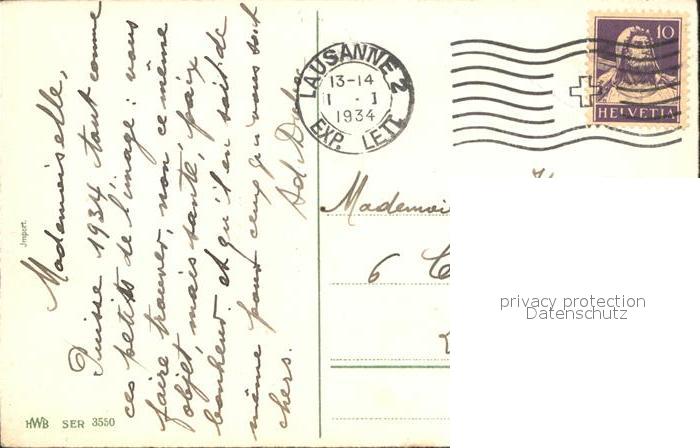 Mademoiselle,
Puisse 1934 tout comme
ces petits de l'image: vous
faire trouver, non ce même
objet, mais santé, paix
bonheur et qu'il en soit de
même pour ceux qui vous sont
chers.
Ad.
LAUSANNE 2
13-14
1 · I
1934
EXP. LETT.
10
HELVETIA
Mademoi
6 C
privacy protection
Datenschutz
Import.
HWB SER 3550